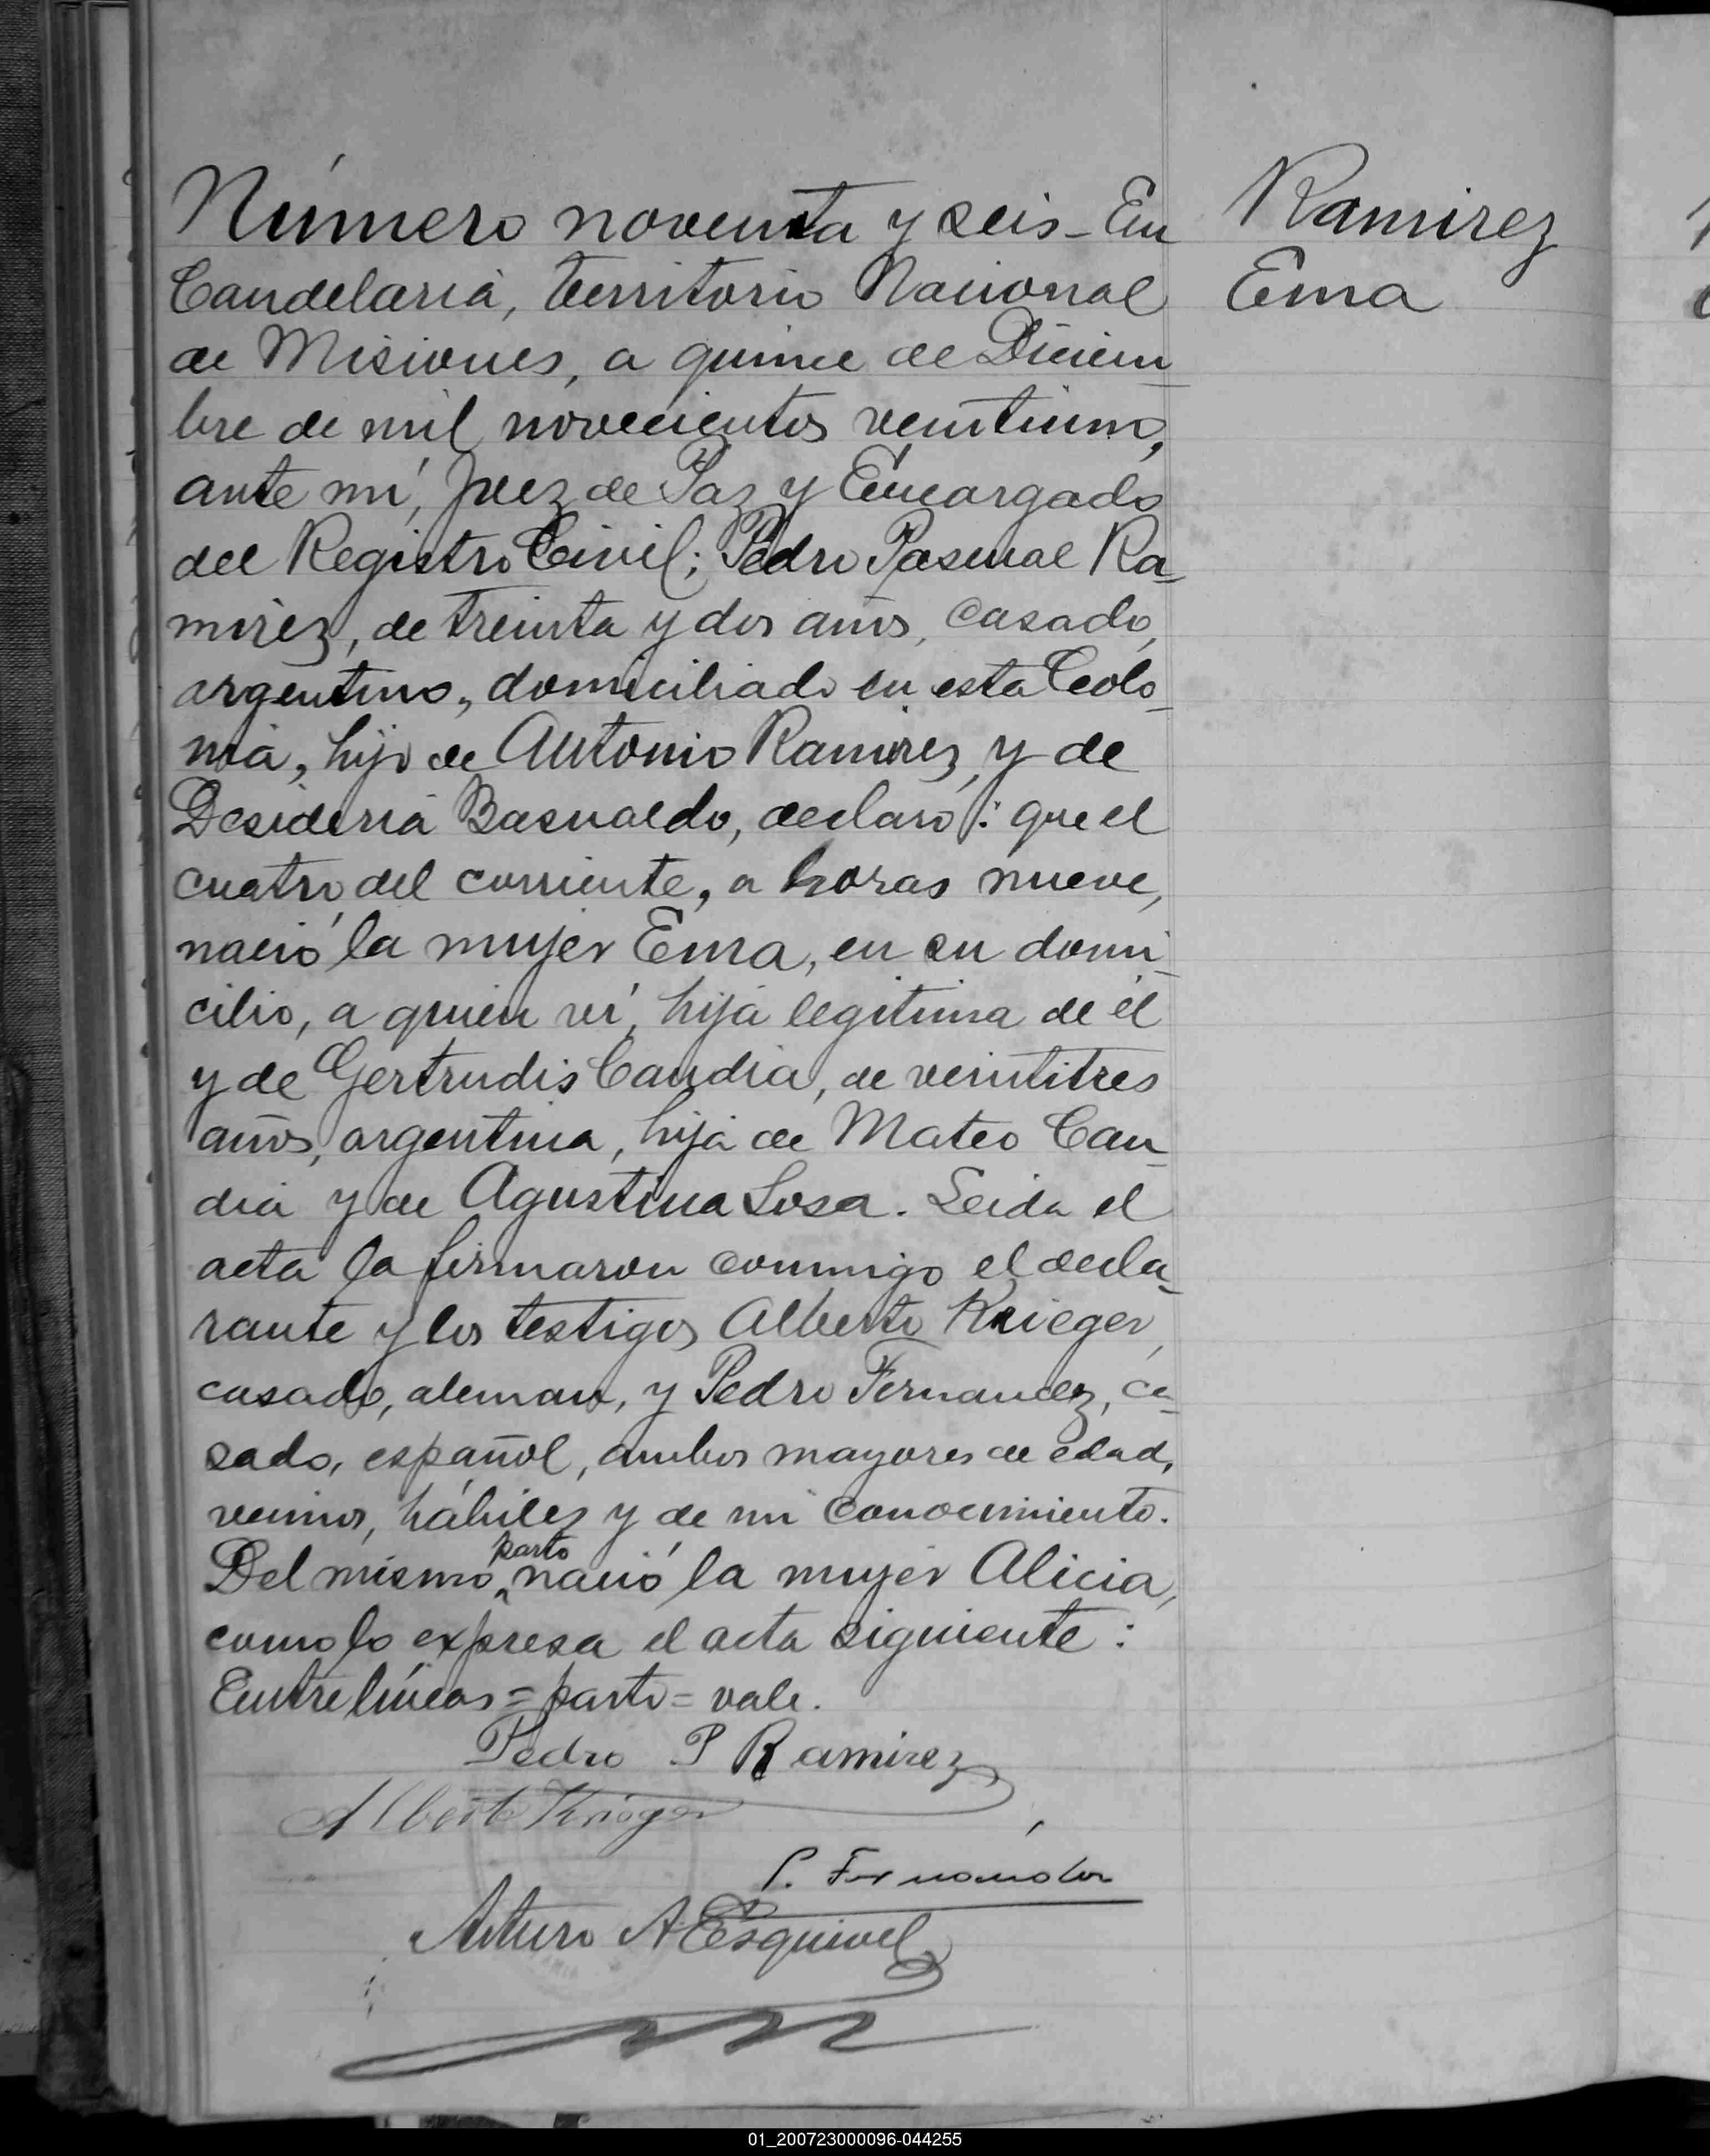 Número noventa y seis - En
Candelaria, territorio Nacional
de Misiones, a quince de Diciem_
bre de mil novecientos veintiuno,
ante mí, Juez de Paz y Encargado
del Registro Civil; Pedro Pascual Ra_
mirez, de treinta y dos años, casado,
argentino, domiciliado en esta Colo_
nia, hijo de Antonio Ramirez, y de
Desideria Basualdo, declaró: que el
cuatro del corriente, a horas nueve,
nació la mujer Ema, en su domi_
cilio, a quien ví, hija legitima de él
y de Gertrudis Candia, de veintitres
años, argentina, hija de Mateo Can_
dia y de Agustina Sosa. Leida el
acta la firmaron conmigo el decla_
rante y los testigos Alberto Krieger,
casado, aleman, y Pedro Fernandez, ca_
sado, español, ambos mayores de edad,
vecinos, hábiles y de mi conocimiento.
Del mismo parto nació la mujer Alicia,
como lo expresa el acta siguiente:
Entre líneas = parto = vale.
Pedro P Ramirez
Albert Krieger
P. Fernandez
Arturo A Esquivel
Ramirez
Ema
01_200723000096-044255